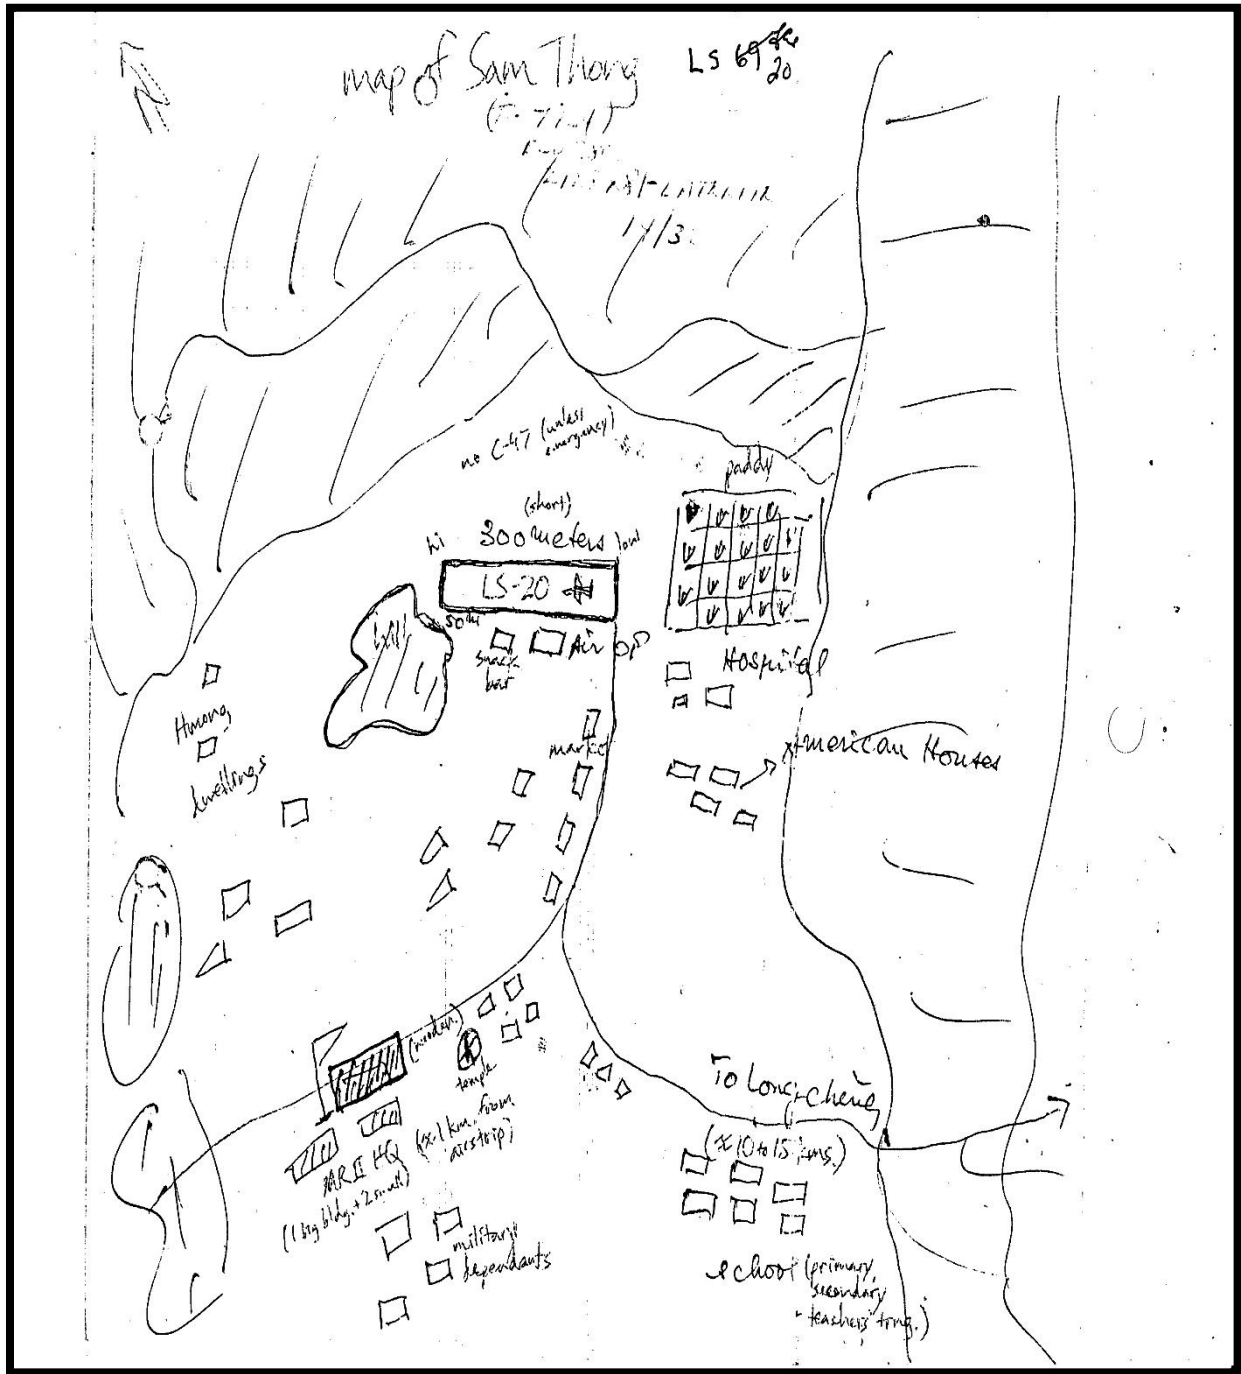 map of Sam Thong
LS 69
20
14/3
no C-47 (unless
emergency)
paddy
(short)
hi 300 meters low
LS-20
50m
hill
snack
bar
Air OP
Hospital
Hmong
dwellings
market
American Houses
(wooden)
temple
To Long-Cheng
(≈ 10 to 15 kms.)
MR II HQ
(1 big bldg. + 2 small)
(≈ 1 km. from
airstrip)
military
dependants
school (primary,
secondary
teachers' trng.)